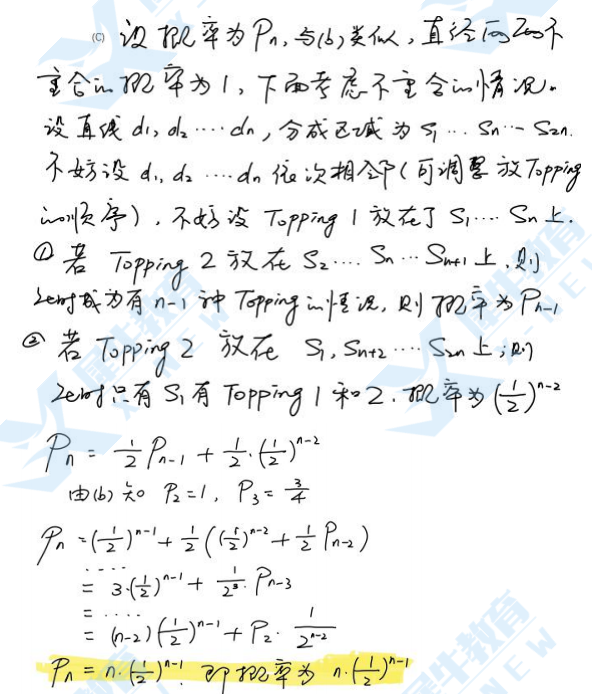 (C) 设概率为Pn,与(b)类似,直径两两不
重合的概率为1,下面考虑不重合的情况。
设直线 d₁, d₂ ⋯⋯ dn, 分成区域为 S₁ ⋯ Sn ⋯ S2n.
不妨设 d₁, d₂ ⋯⋯ dn 依次相邻(可调整放Topping
的顺序),不妨设 Topping 1 放在了 S₁⋯⋯ Sn 上.
① 若 Topping 2 放在 S₂⋯⋯ Sn ⋯ Sn+1 上,则
此时成为有 n-1 种 Topping的情况,则概率为 Pn-1
② 若 Topping 2 放在 S₁, Sn+2 ⋯⋯ S2n 上,则
此时只有 S₁ 有 Topping 1 和 2. 概率为 (1/2)^(n-2)
Pn = 1/2 Pn-1 + 1/2·(1/2)^(n-2)
由(b)知 P₂=1, P₃= 3/4
Pn = (1/2)^(n-1) + 1/2((1/2)^(n-2) + 1/2 Pn-2)
⋯⋯
= 3·(1/2)^(n-1) + 1/2³ · Pn-3
= ⋯⋯
= (n-2)(1/2)^(n-1) + P₂· 1/2^(n-2)
Pn = n·(1/2)^(n-1). 即概率为 n·(1/2)^(n-1)
犀牛教育